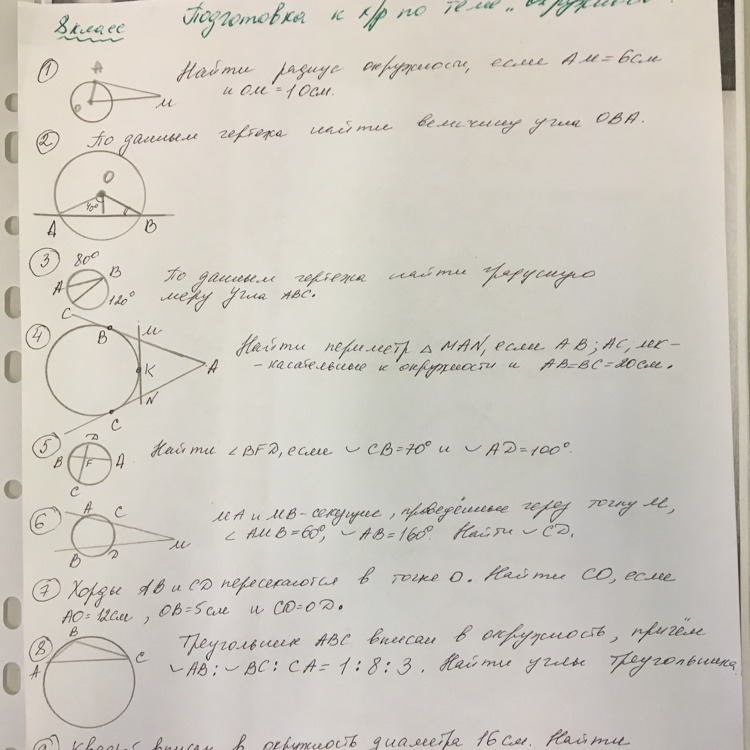 8 класс Подготовка к к/р по теме „Окружность
① Найти радиус окружности, если AM = 6см
и OM = 10см.
A
O
M
② По данным чертежа найти величину угла OBA.
O
40°
A
B
③ 80°
A
B
120°
C
По данным чертежа найти градусную
меру угла ABC.
④ Найти периметр △ MAN, если AB; AC, MK -
- касательные к окружности и AB=BC=20см.
B
M
K
A
N
C
⑤ Найти ∠BFD, если ◡ CB=70° и ◡ AD=100°.
D
B
F
A
C
⑥ MA и MB-секущие, проведённые через точку M,
∠ AMB=60°, ◡ AB=160°. Найти ◡ CD.
A
C
B
D
M
⑦ Хорды AB и CD пересекаются в точке O. Найти CO, если
AO=12см, OB=5см и CO=OD.
⑧ Треугольник ABC вписан в окружность, причём
◡ AB: ◡ BC: CA = 1:8:3. Найти углы треугольника
B
A
C
9 Квадрат вписан в окружность диаметра 16см. Найти